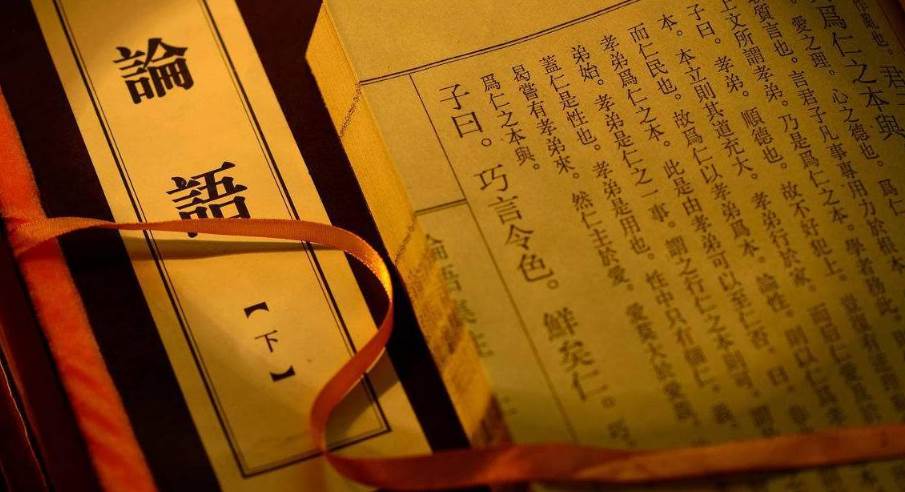 作亂也。
爲仁之本與
愛之理。心之德也。爲仁
質言也。言君子凡事專用力於根本
上文所謂孝弟。乃是爲仁之本。學者務此。
子曰。孝弟。順德也。故不好犯上。豈復有逆理
本。本立則其道充大。孝弟行於家。而后仁愛
而仁民也。故爲仁以孝弟爲本。論性。則以仁爲
孝弟爲仁之本。此是由孝弟可以至仁否。曰。
弟始。孝弟是仁之一事。謂之行仁之本則可。謂
蓋仁是性也。孝弟是用也。性中只有箇仁。義。
曷嘗有孝弟來。然仁主於愛。愛莫大於愛親。
爲仁之本與。
子曰。巧言令色。鮮矣仁。
論語集注
論語
【下】